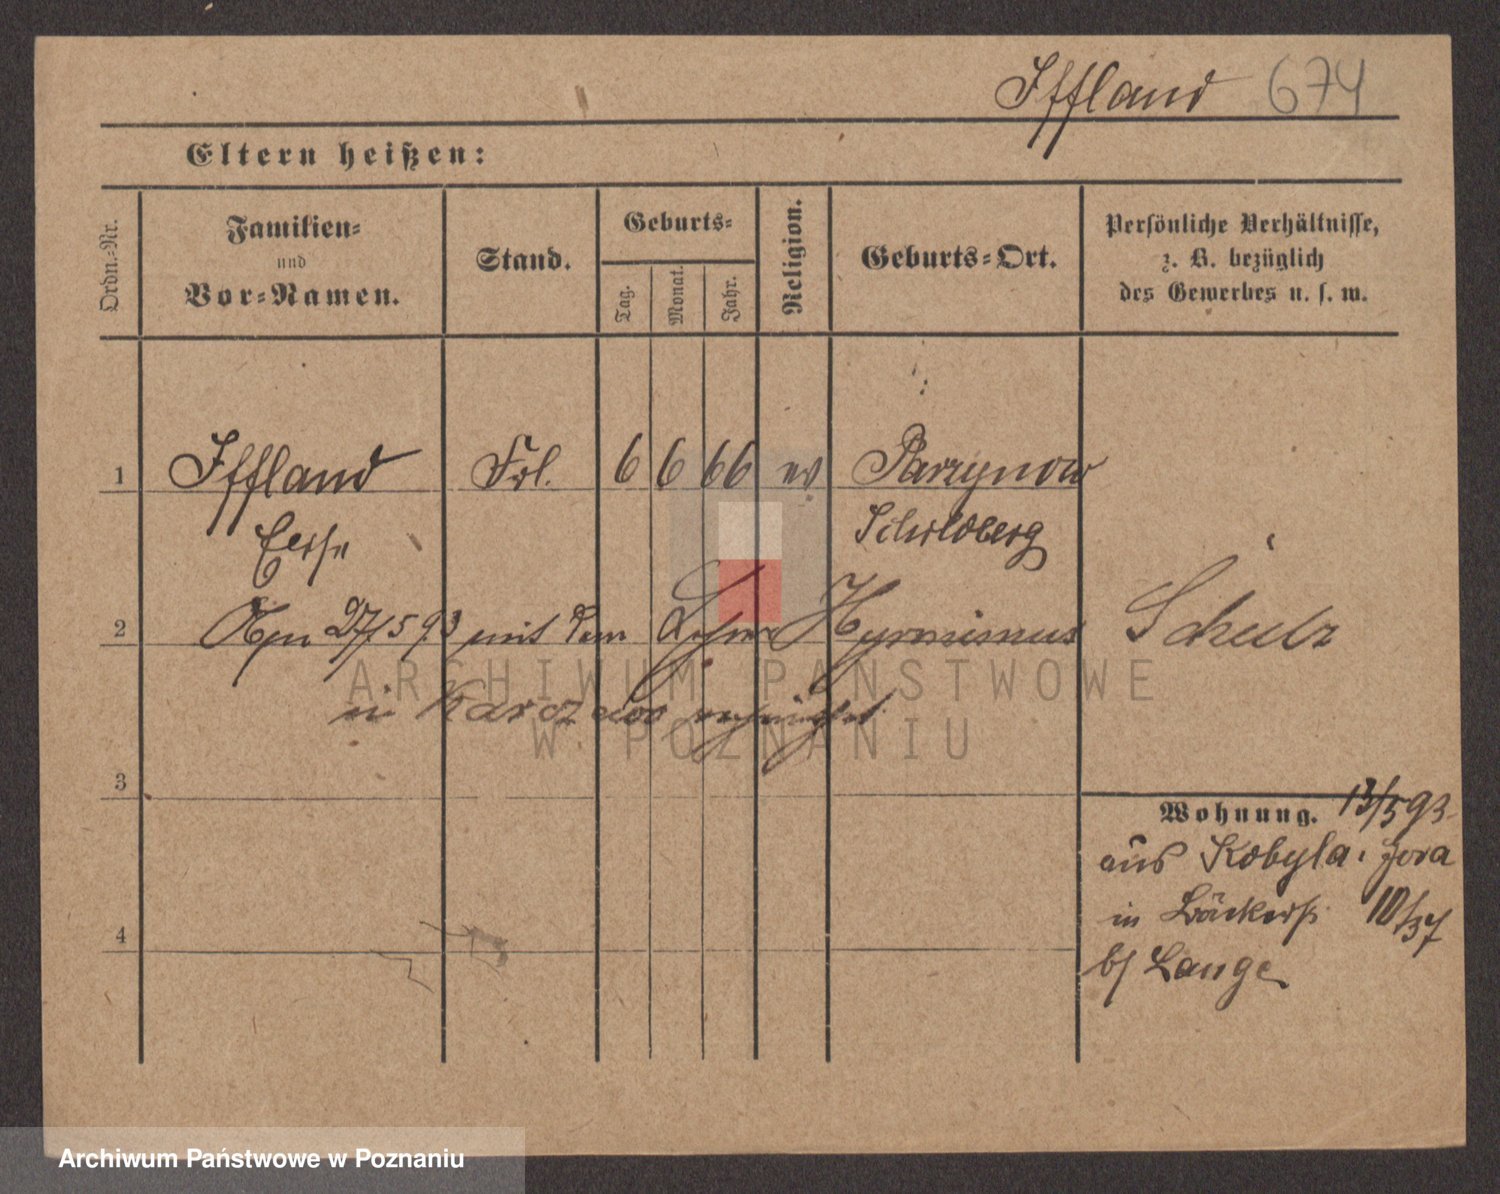 Iffland 674
Eltern heißen:
Ordn.-Nr.
Familien-
und
Vor-Namen.
Stand.
Geburts-
Tag.
Monat.
Jahr.
Religion.
Geburts-Ort.
Persönliche Verhältnisse,
z. B. bezüglich
des Gewerbes u. s. w.
1 Iffland Frl. 6 6 66 ev Parzynow
Schildberg
2 27/5 93 mit dem Lehrer
in
Schulz
3
4
Wohnung. 13/5 93
aus Kobyla. Gora
in Bäckerst. 10/37
b/ Lange
ARCHIWUM PAŃSTWOWE
W POZNANIU
Archiwum Państwowe w Poznaniu